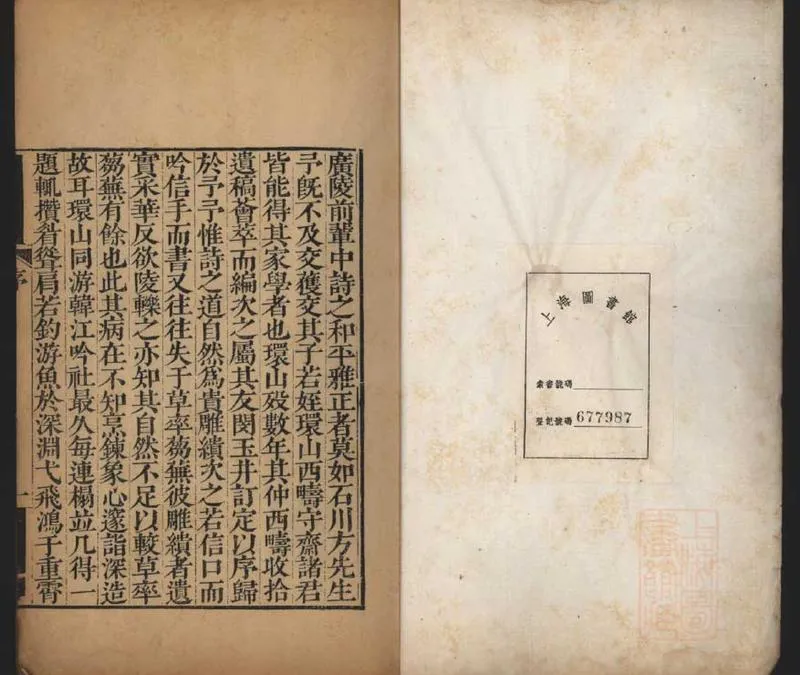 上海圖書館
索書號碼
登記號碼 677987
廣陵前輩中詩之和平雅正者莫如石川方先生
予旣不及交獲交其子若姪環山西疇守齋諸君
皆能得其家學者也環山歿數年其仲西疇收拾
遺稿薈萃而編次之屬其友閔玉井訂定以序歸
於予予惟詩之道自然爲貴雕繢次之若信口而
吟信手而書又往往失于草率蒭蕪彼雕繢者遺
實采華反欲陵轢之亦知其自然不足以較草率
蒭蕪有餘也此其病在不知烹鍊象心邃詣深造
故耳環山同游韓江吟社最久每連榻並几得一
題輒攢眉聳肩若釣游魚於深淵弋飛鴻于重霄
序
一